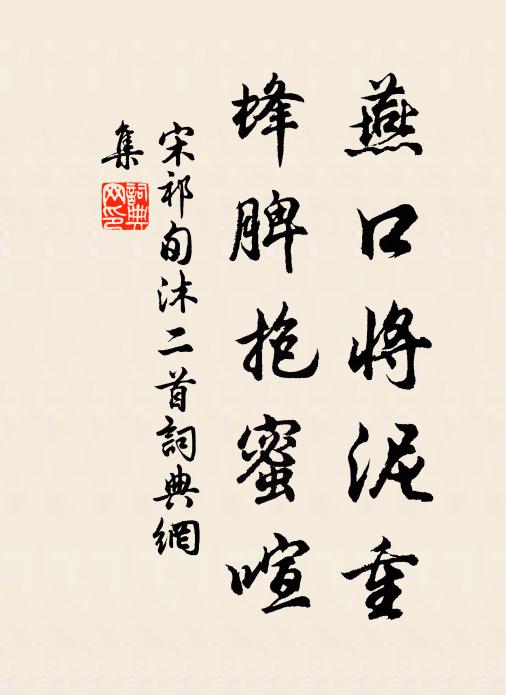 燕口將泥重
蜂脾抱蜜喧
宋祁旬沐二首詞典網
集
詞典网印